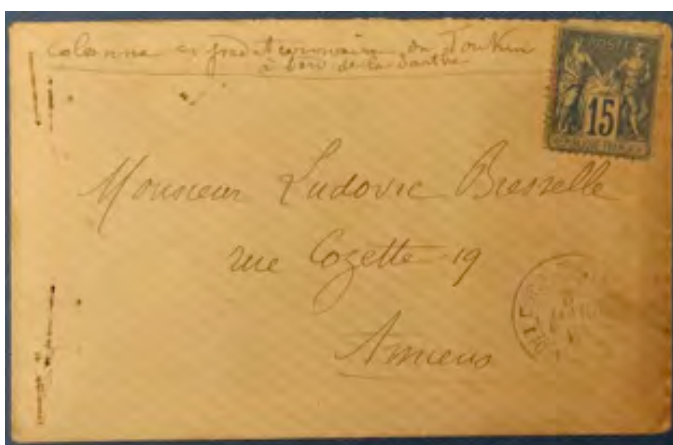 Colonne expéditionnaire du Tonkin
à bord de la Sarthe
POSTE
15
REPUBLIQUE FRANCAISE
Monsieur Ludovic Bresselle
rue Cozette 19
Amiens